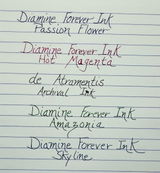 Diamine Forever Ink
Passion Flower
Diamine Forever Ink
Hot Magenta
de Atramentis
Archival Ink
Diamine Forever Ink
Amazonia
Diamine Forever Ink
Skyline